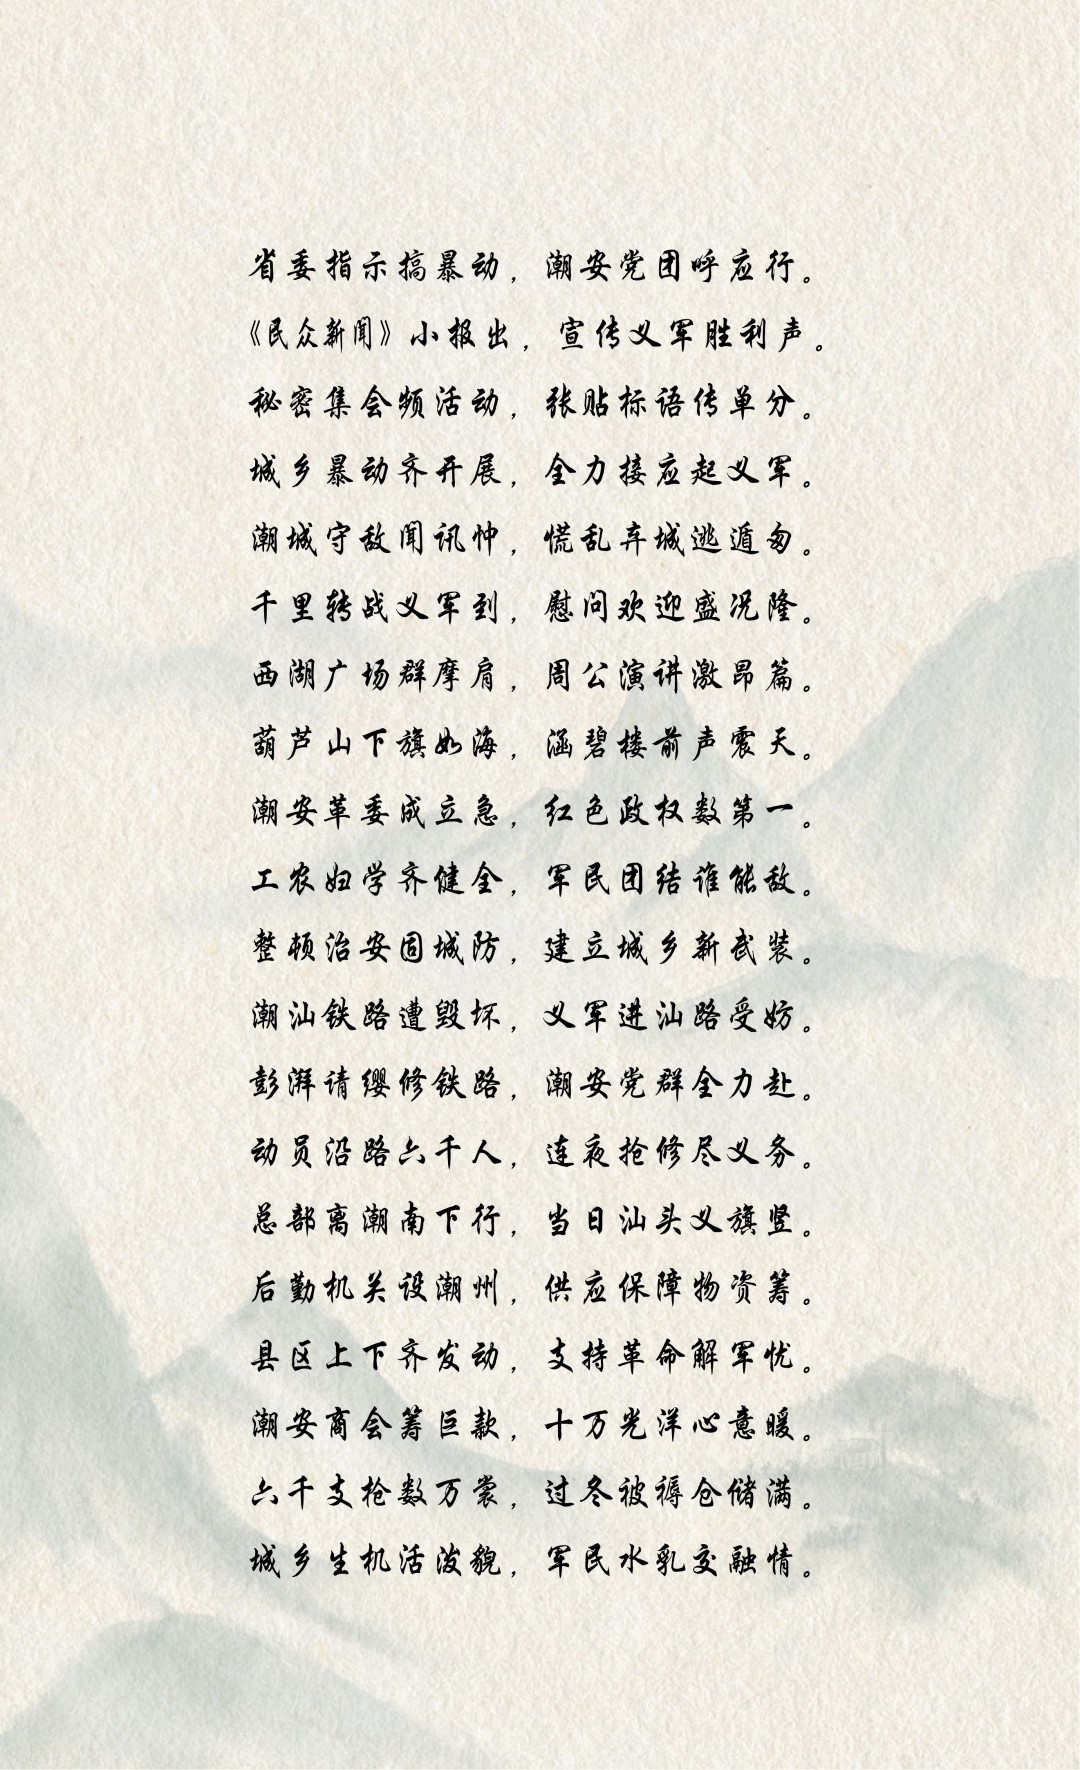 省委指示搞暴动，潮安党团呼应行。
《民众新闻》小报出，宣传义军胜利声。
秘密集会频活动，张贴标语传单分。
城乡暴动齐开展，全力接应起义军。
潮城守敌闻讯忡，慌乱弃城逃遁匆。
千里转战义军到，慰问欢迎盛况隆。
西湖广场群摩肩，周公演讲激昂篇。
葫芦山下旗如海，涵碧楼前声震天。
潮安革委成立急，红色政权数第一。
工农妇学齐健全，军民团结谁能敌。
整顿治安固城防，建立城乡新武装。
潮汕铁路遭毁坏，义军进汕路受妨。
彭湃请缨修铁路，潮安党群全力赴。
动员沿路六千人，连夜抢修尽义务。
总部离潮南下行，当日汕头义旗竖。
后勤机关设潮州，供应保障物资筹。
县区上下齐发动，支持革命解军忧。
潮安商会筹巨款，十万光洋心意暖。
六千支枪数万裳，过冬被褥仓储满。
城乡生机活泼貌，军民水乳交融情。